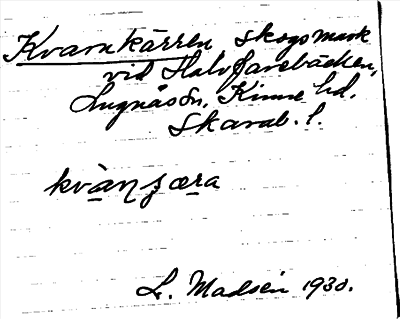 Kvarnkärren skogsmark
vid Halvfarebäcken,
Lugnås sn, Kinne hd.
Skarab. l.
kvànʒæra
L. Madsén 1930.